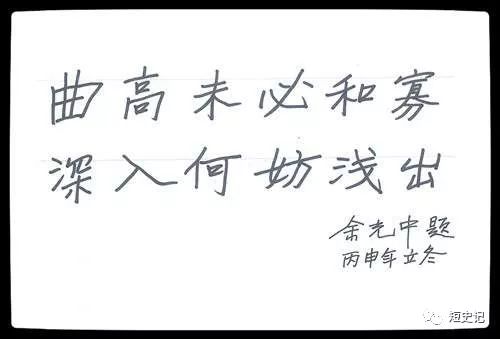 曲高未必和寡
深入何妨浅出
余光中题
丙申年立冬
短史记